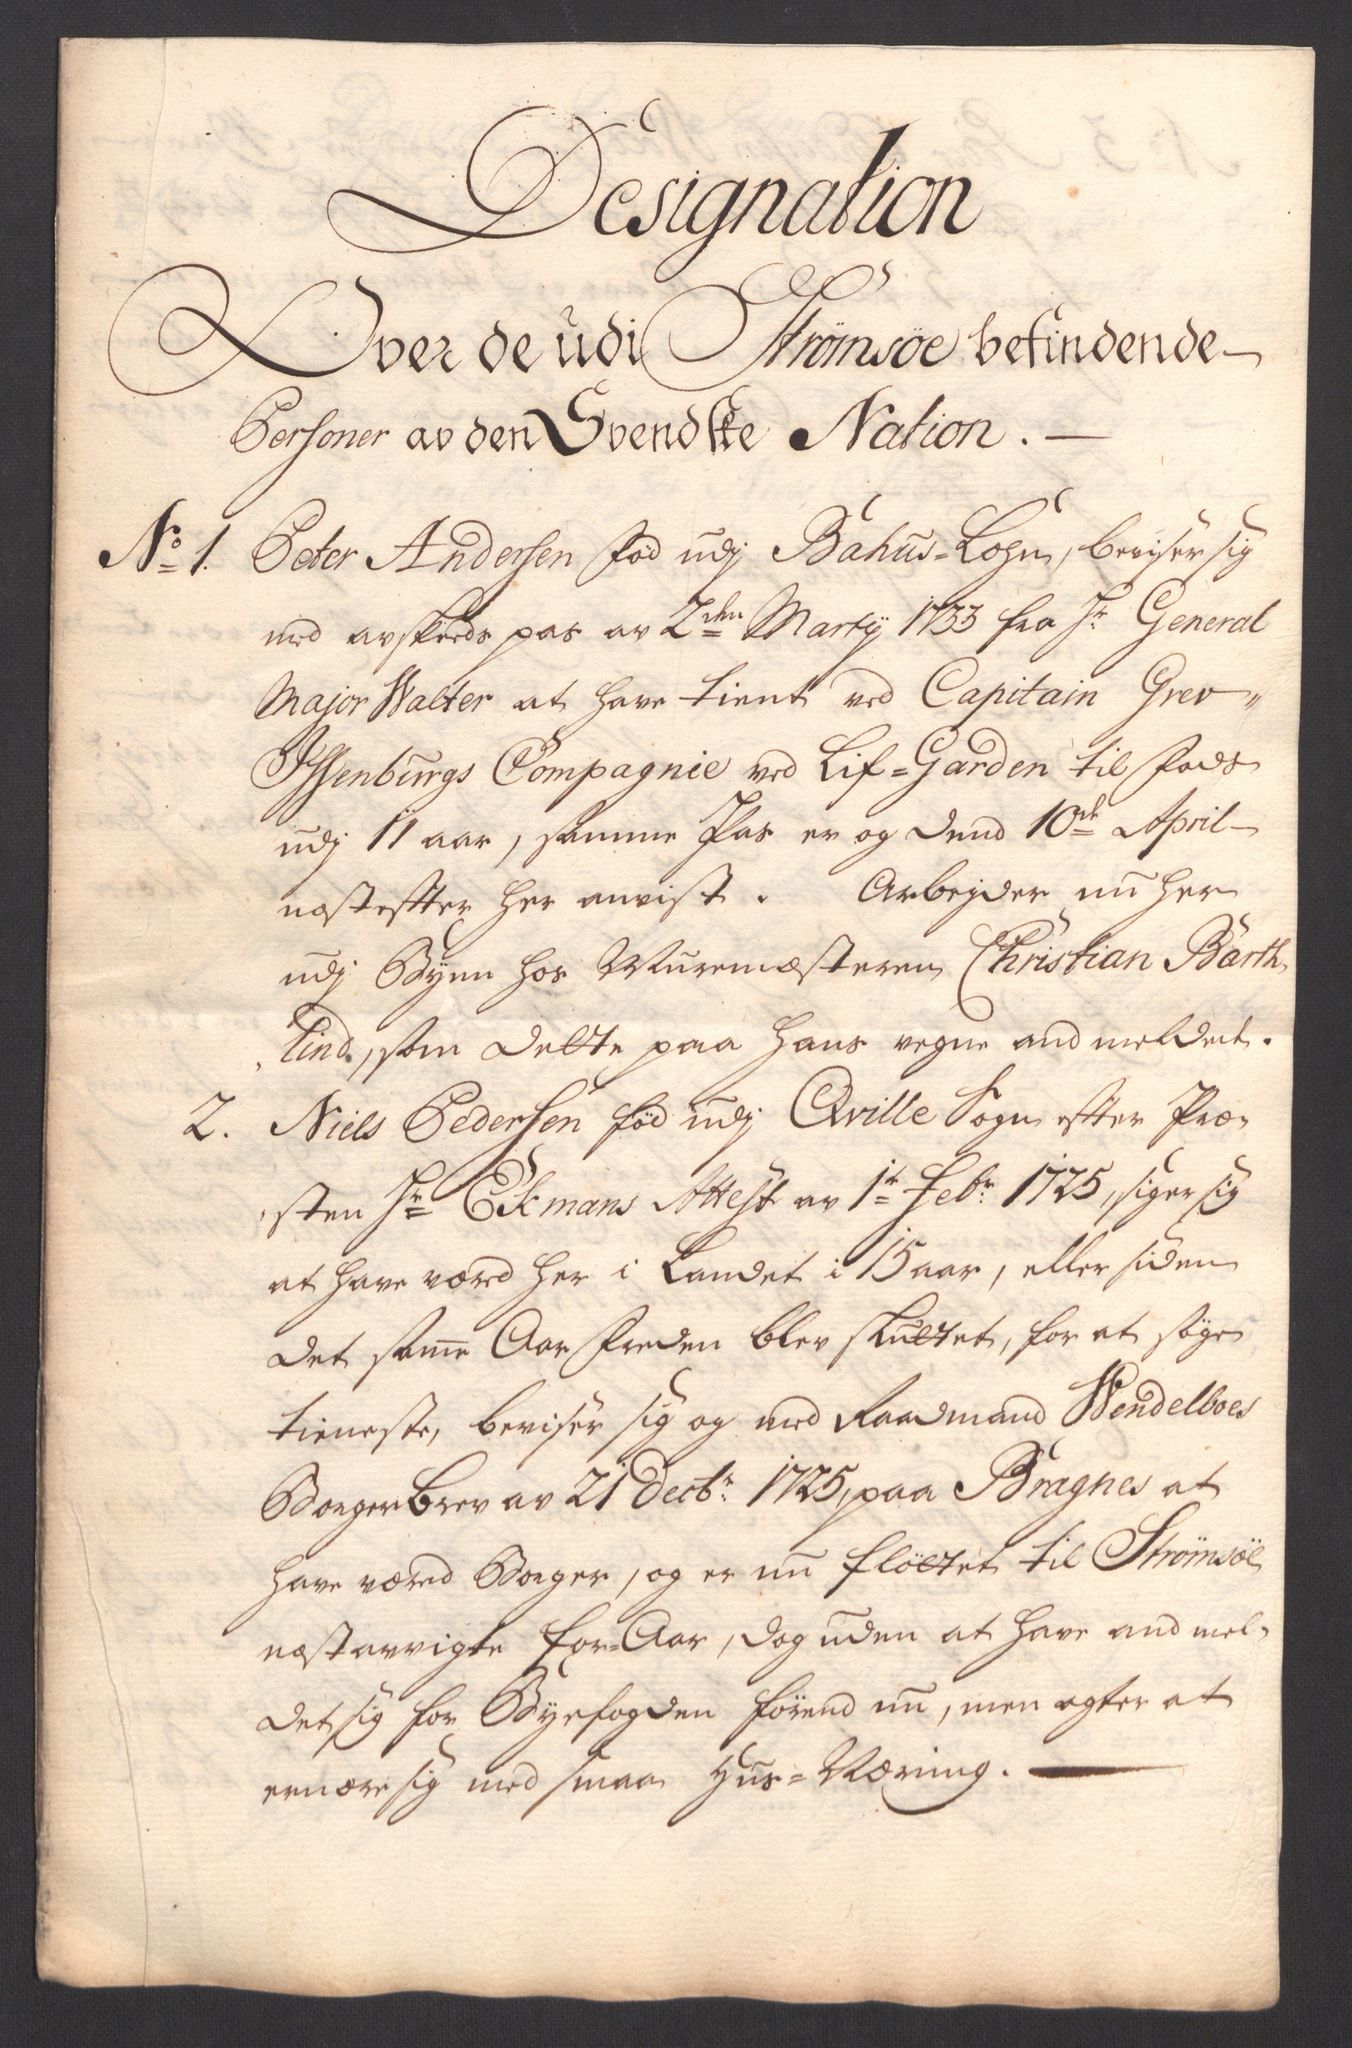 Designation
Over de udi Strømsöe befindende
Personer av den Svendske Nation.
No 1. Peter Andersen föd udj Bahus=Lehn, beviser sig
med avskeeds pas av 2den Martÿ 1733 fra Hr General
Major Walter at have tient ved Capitain Grev
Issenburgs Compagnie ved Lif=Garden til Fods
udj 11 aar, samme Pas er og dend 10de April
næstefter her anvist. Arbejder nu her
udj Byen hos Muremæsteren Christian Barth,
lind, som dette paa hans vegne and meldet.
2. Niels Pedersen föd udj Qville Sogn efter Præ,
sten Hr Ekmans Attest av 1te Febr: 1725, siger sig
at have værd her i Landet i 15 aar, eller siden
det samme Aar Freden blev sluttet, for at söge
tieneste, beviser sig og med Raadmand Wendelboes
BorgerBrev av 21 Decbr: 1725, paa Bragnes at
have værd Borger, og er nu flöttet til Strømsöe
næstavvigte for=Aar, dog uden at have and mel,
det sig for Byefogden förend nu, men agter at
ernære sig med smaa Huus=Næring.